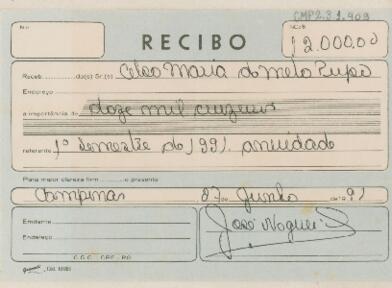 CMP2.3.1.409
No
NCz$
RECIBO
12.000,00
Receb do(s) Sr.(s) Celso Maria de Mello Pupo
Endereço
a importância de doze mil cruzeiros
referente 1º semestre de 1991 anuidade
Para maior clareza firm o presente
Campinas de Junho de 19 91
Emitente José Nogueira
Endereço
C.G.C. CPF RG